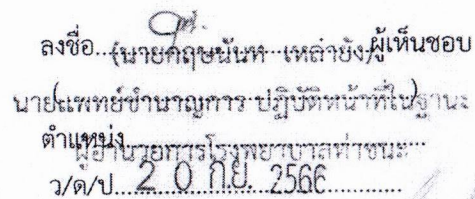 ลงชื่อ...(นายกฤษนันท เหล่ายัง)ผู้เห็นชอบ
(นายแพทย์ชำนาญการ ปฏิบัติหน้าที่ในฐานะ)
ตำแหน่ง...ผู้อำนวยการโรงพยาบาลท่าชนะ
ว/ด/ป...2 0 ก.ย. 2566